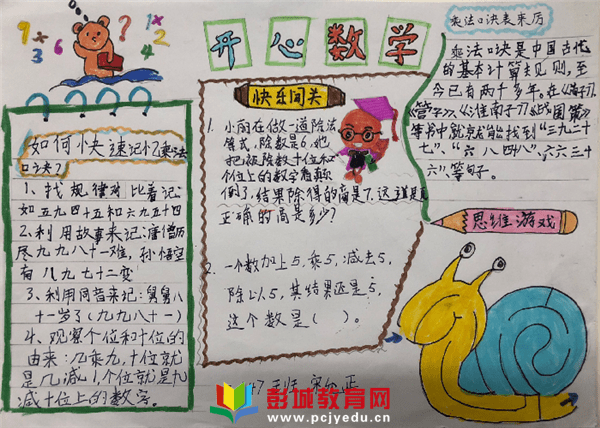 9×
×3
6
1×
÷2
4
开心数学
如何快速记忆乘法
口诀?
1、找规律对比着记
如五九四十五和六九五十四
2、利用故事来记:唐僧历
尽九九八十一难,孙悟空
有八九七十二变
3、利用同音来记:舅舅八
十一岁了(九九八十一)
4、观察个位和十位的
由来:几乘九,十位就
是几减1,个位就是九
减十位上的数字。
快乐闯关
1. 小丽在做一道除法
等式,除数是6,她
把被除数十位和
个位上的数字看颠
倒了,结果除得的商是7,这道题
正确的商是多少?
2. 一个数加上5,乘5,减去5,
除以5,其结果还是5,
这个数是( )。
乘法口诀表来历
乘法口诀是中国古代
的基本计算规则,至
今已有两千多年。在《荀子》
《管子》《淮南子》《战国策》
等书中就能找到“三九二十
七”、“六八四十八”、六六三十
六”等句子。
思维游戏
彭城教育网
www.pcjyedu.cn